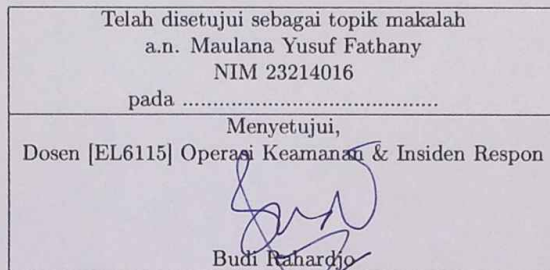 Telah disetujui sebagai topik makalah
a.n. Maulana Yusuf Fathany
NIM 23214016
pada ..........................................
Menyetujui,
Dosen [EL6115] Operasi Keamanan & Insiden Respon
Budi Rahardjo